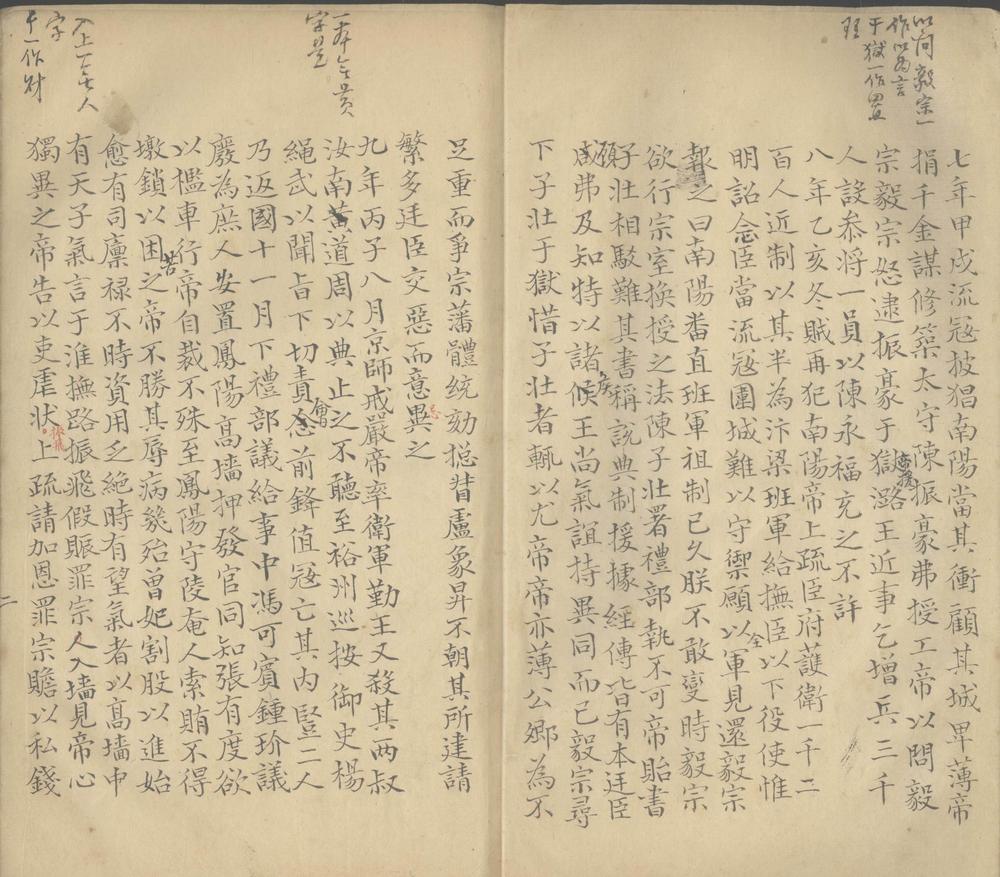 以問毅宗一
作以爲言
于獄一作置
理
七年甲戍流冦披猖南陽當其衝顧其城卑薄帝
捐千金謀修築太守陳振豪弗授工帝以問毅
宗毅宗怒逮振豪于獄潞王近事乞增兵三千
援
人設叅將一員以陳永福充之不許
八年乙亥冬賊再犯南陽帝上疏臣府護衛一千二
百人近制以其半為汴梁班軍給撫臣以下役使惟
明詔念臣當流冦圍城難以守禦願以軍見還毅宗
全
報之曰南陽番直班軍祖制已久朕不敢變時毅宗
欲行宗室換授之法陳子壯署禮部執不可帝貽書
子壯相駁難其書稱說典制援據經傳皆有本廷臣
顧
咸弗及知特以諸候王尚氣誼持異同而已毅宗尋
侯
下子壯于獄惜子壯者輒以尤帝帝亦薄公卿為不
一本無黄
字是
入上一無人
字
于一作財
足重而爭宗藩體統劾揔督盧象昇不朝其所建請
繁多廷臣交惡而意異之
忌
九年丙子八月京師戒嚴帝率衛軍勤王又殺其兩叔
汝南黄道周以典止之不聽至裕州巡按御史楊
繩武以聞旨下切責念前鋒值冦亡其內豎二人
會
乃返國十一月下禮部議給事中馮可賓鍾玠議
廢為庶人安置鳳陽高墻押發官同知張有度欲
以檻車行帝自裁不殊至鳳陽守陵奄人索賄不得
墩鎖以困之帝不勝其辱病幾殆曾妃割股以進始
苦
愈有司廩禄不時資用乏絕時有望氣者以高墻中
有天子氣言于淮撫路振飛假賑罪宗人入墻見帝心
獨異之帝告以吏虐狀上疏請加恩罪宗贍以私錢
振飛
二